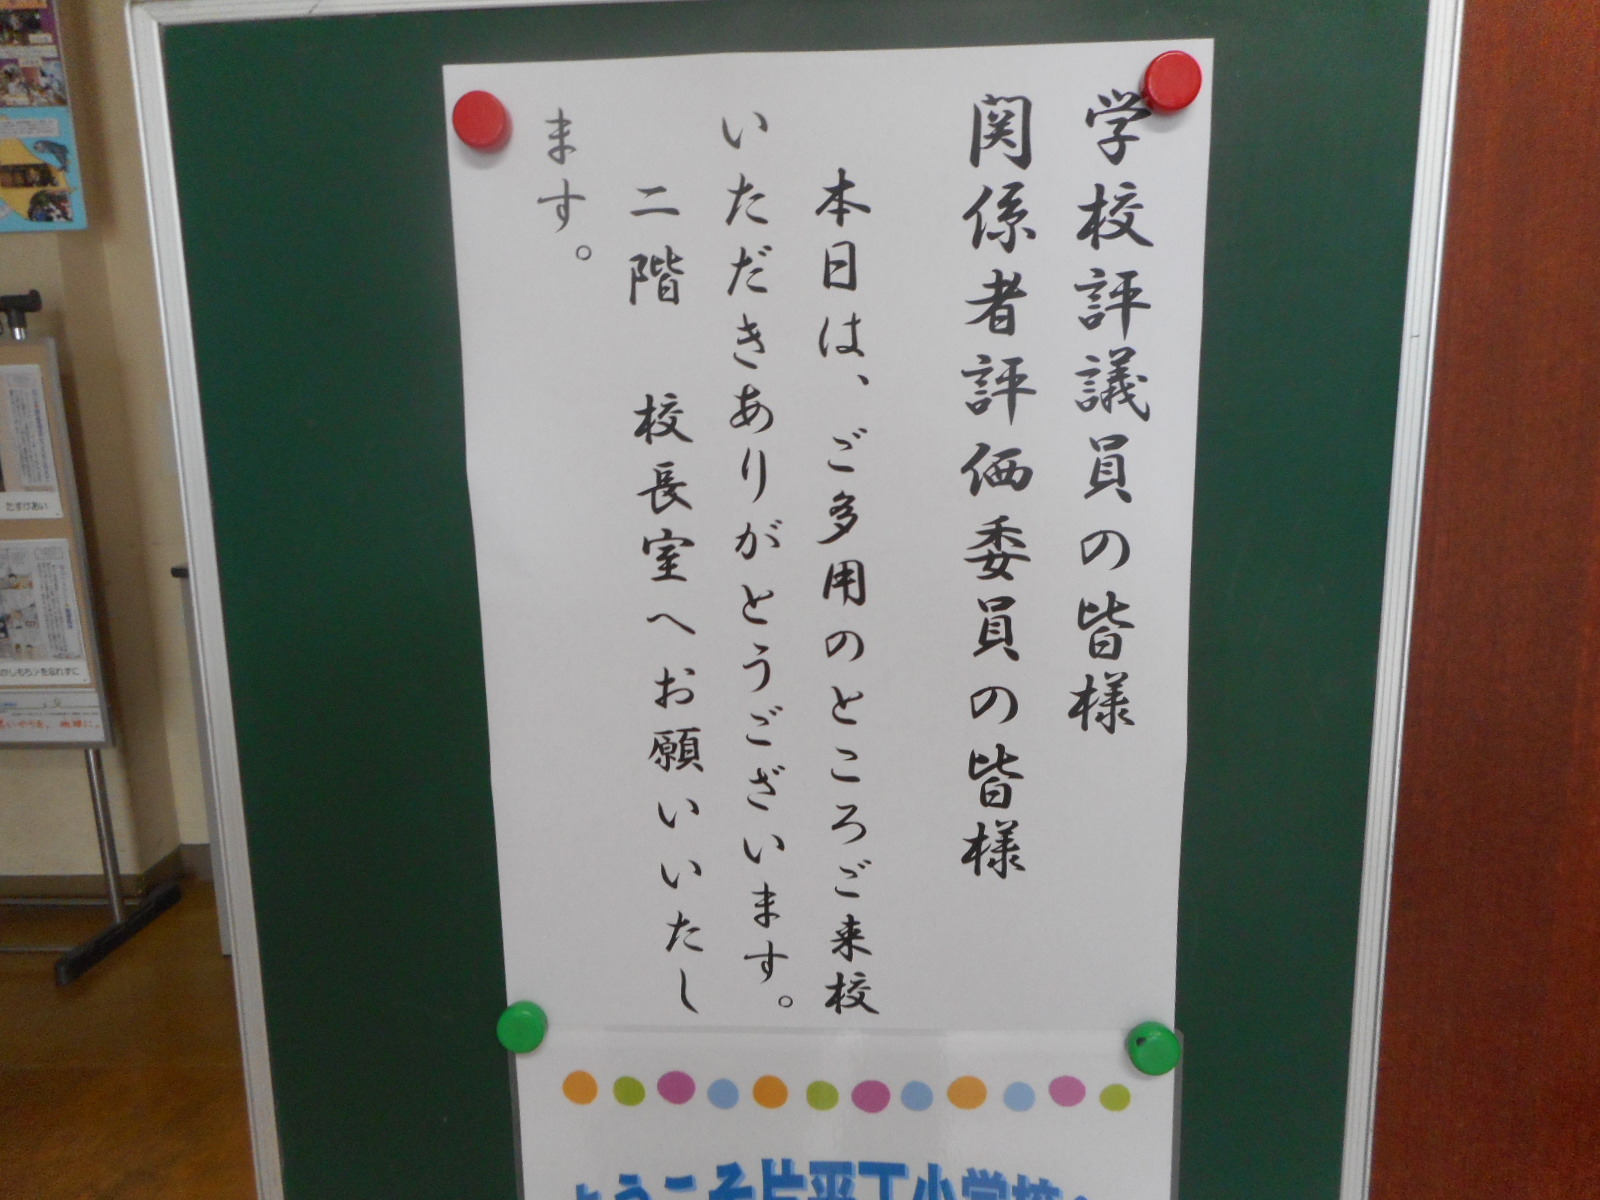 学校評議員の皆様
関係者評価委員の皆様
本日は、ご多用のところご来校
いただきありがとうございます。
二階　校長室へお願いいたし
ます。
ようこそ片平丁小学校へ
たすけあい